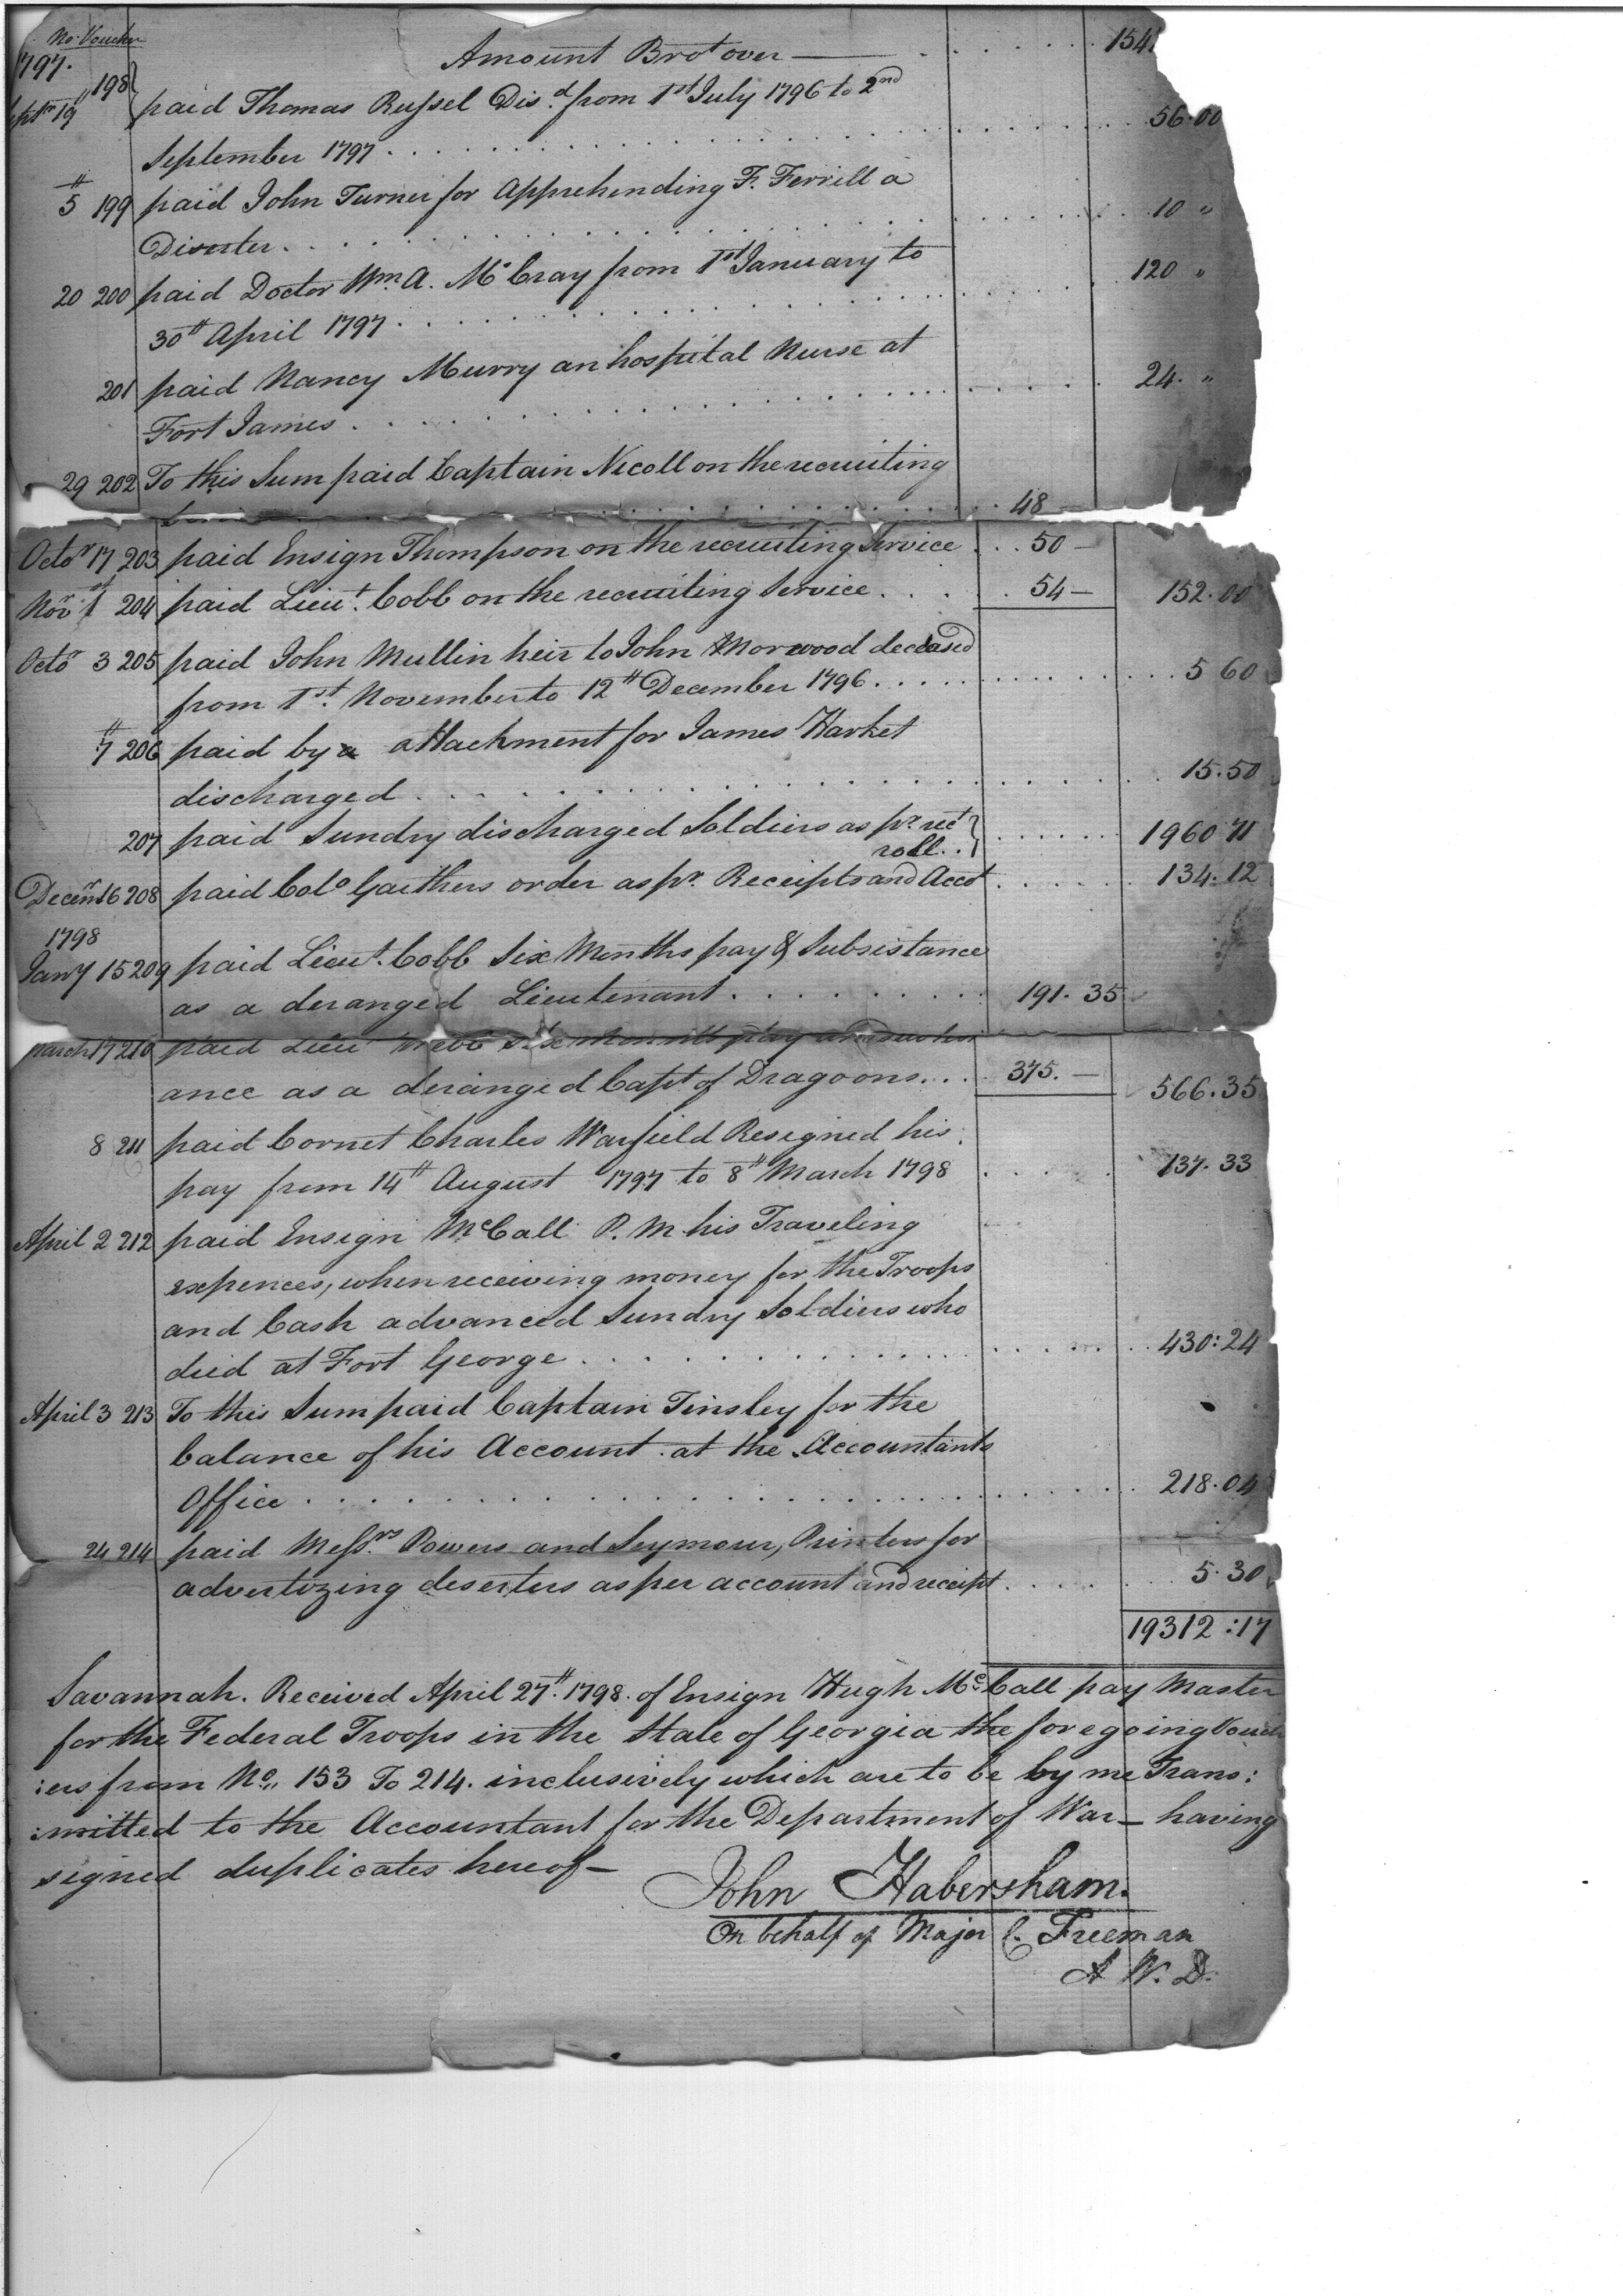 No. Voucher
1797. Amount Brot over — 154
Sept 19 198 paid Thomas Russel Dis.d from 1st July 1796 to 2nd
September 1797 . . . 56.00
5 199 paid John Turner for Apprehending F. Ferrill a
Diserter . . . 10 "
20 200 paid Doctor Wm. A. McCray from 1st January to
30th April 1797 . . . 120 "
201 paid Nancy Murry an hospital Nurse at
Fort James . . . 24. "
29 202 To this Sum paid Captain Nicoll on the recruiting
48 —
Octor 17 203 paid Ensign Thompson on the recruiting Service . . 50 —
Novr 1 204 paid Lieut. Cobb on the recruiting Service . . . 54 — 152.00
Octor 3 205 paid John Mullin heir to John Morwood deceased
from 1st. November to 12th December 1796 . . . 5 60
7 206 paid by a attachment for James Harket
discharged . . . 15.50
207 paid Sundry discharged Soldiers as pr. rect
roll . . 1960 71
Decemr 16 208 paid Colo Gaithers order as pr. Receipts and Acct . . . 134.12
1798
Jany 15 209 paid Lieut. Cobb Six Months pay & Subsistance
as a deranged Lieutenant . . . 191. 35
March 17 210 paid Lieut Webb six months pay and subsist
ance as a deranged Capt. of Dragoons . . . 375. — 566.35
8 211 paid Cornet Charles Warfield Resigned his
pay from 14th August 1797 to 8th March 1798 . . . 137.33
April 2 212 paid Ensign McCall P. M his Traveling
expences, when receiving money for the Troops
and Cash advanced Sundry Soldiers who
died at Fort George . . . 430:24
April 3 213 To this Sum paid Captain Tinsley for the
balance of his Account at the Accountants
Office . . . 218.04
24 214 paid Messrs. Powers and Seymour, Printers for
advertizing deserters as per account and receipt . . . 5.30
19312:17
Savannah. Received April 27th. 1798. of Ensign Hugh McCall pay Master
for the Federal Troops in the State of Georgia the foregoing Vouch
:ers from No,, 153 To 214. inclusively which are to be by me Trans:
:mitted to the Accountant for the Department of War — having
signed duplicates hereof —
John Habersham.
On behalf of Major C. Freeman
A W. D.